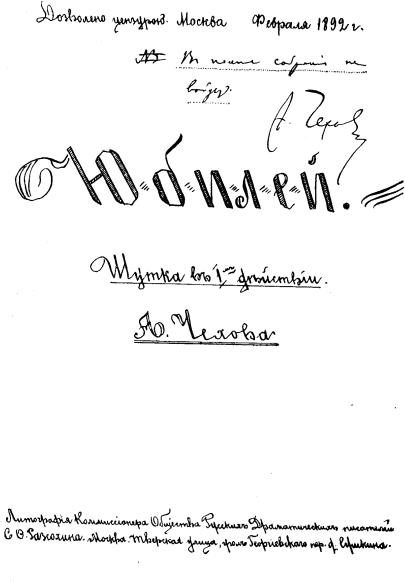 Дозволено цензурой. Москва Февраля 1892 г.
NB В полное собрание не
войдет.
А. Чехов
Ю-б-и-л-е-й.
Шутка въ 1 дѣйствіи.
А. Чехова
Литографія Коммиссіонера Общества Русскихъ Драматическихъ писателей
С. Ѳ. Разсохина. Москва. Тверская улица, уголъ Георгіевскаго пер. д.